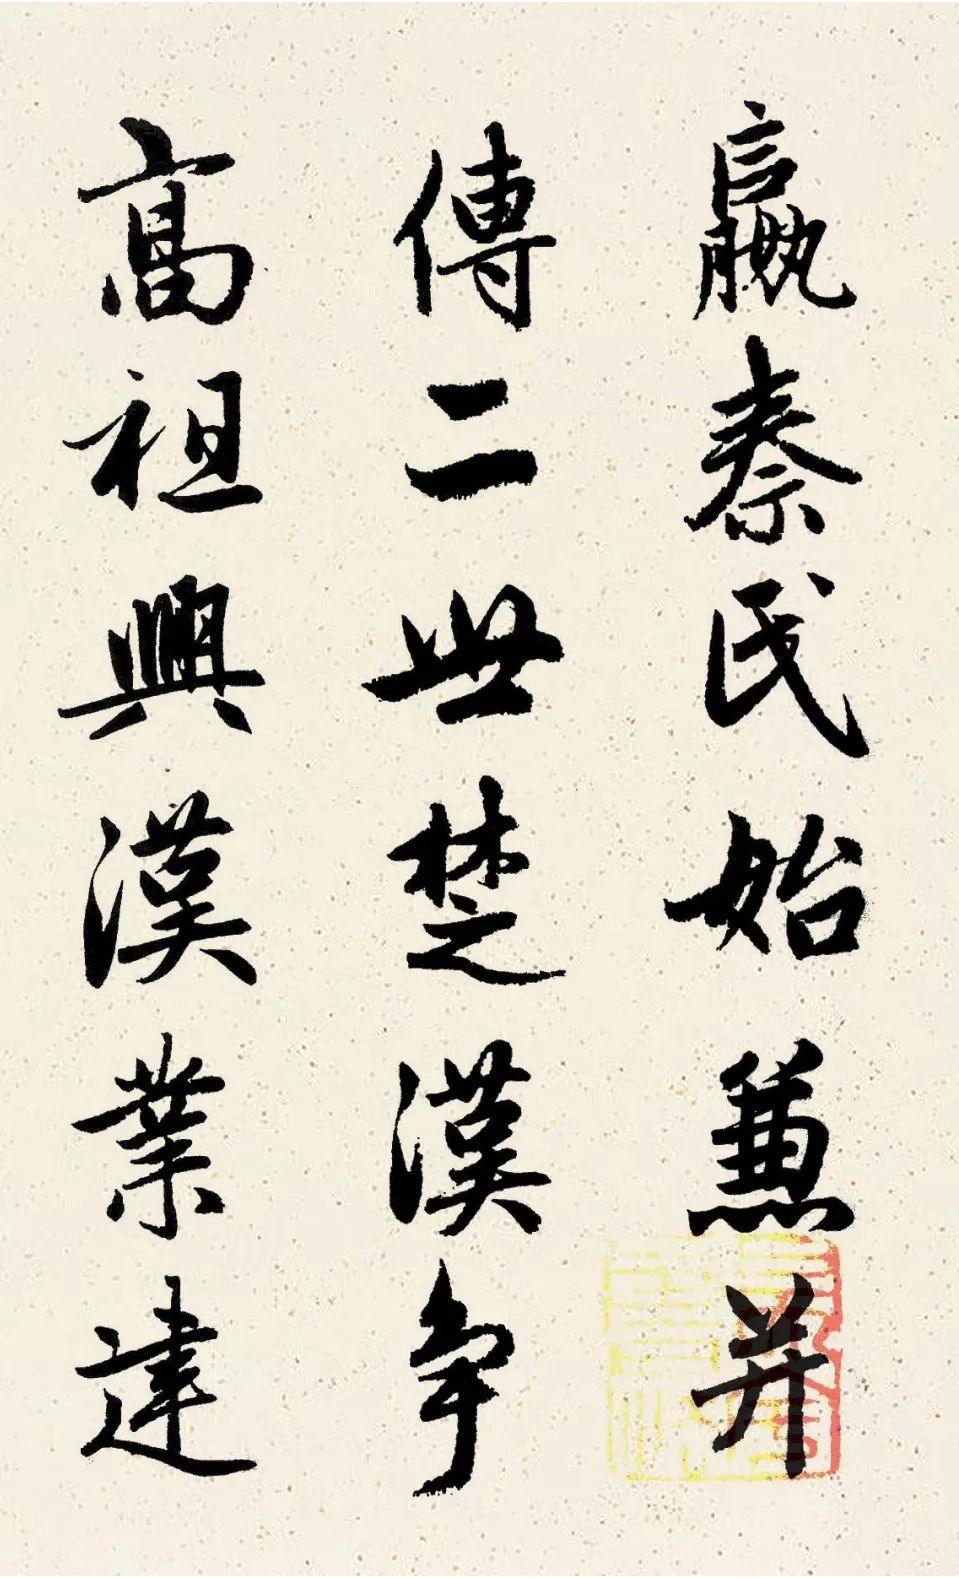 嬴秦氏始兼并
傳二世楚漢争
高祖興漢業建